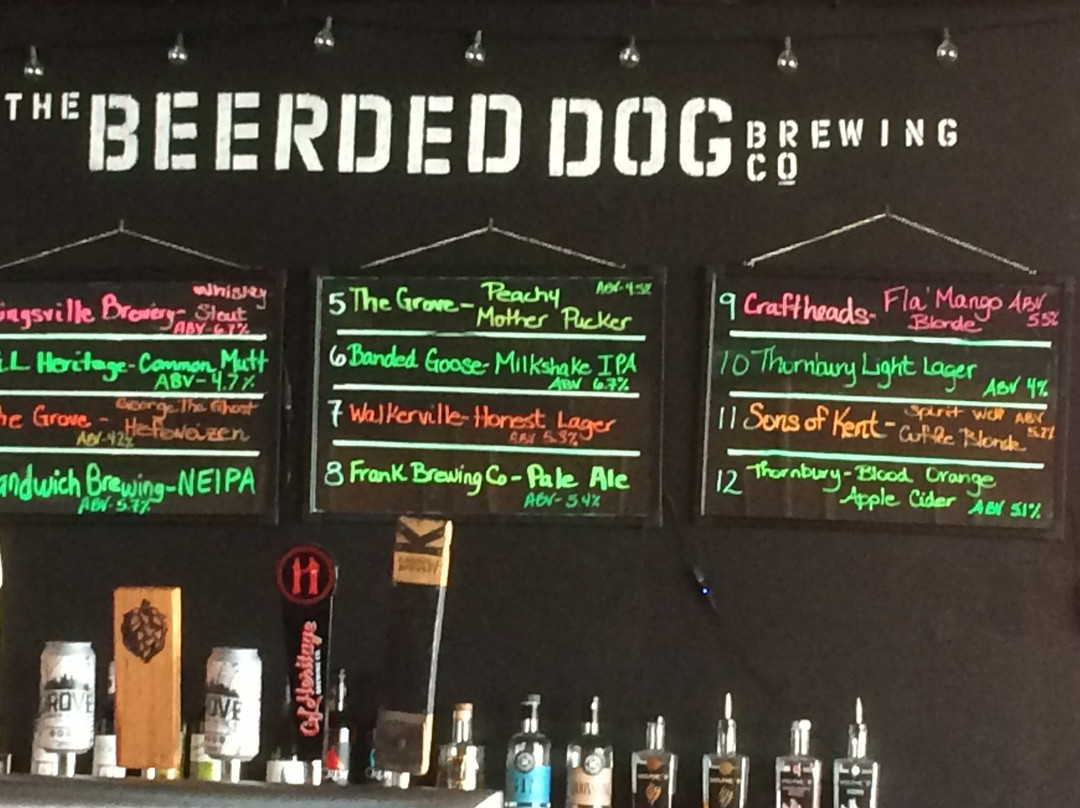 THE BEERDED DOG BREWING CO
ingsville Brewery- Whisky Stout
ABV-6.7%
L Heritage-Common Mutt
ABV-4.7%
he Grove - George The Ghost
ABV-4.2% Hefevaizen
andwich Brewing-NEIPA
ABV-5.7%
5 The Grove- Peachy Mother Pucker
6 Banded Goose- Milkshake IPA
ABV 6.7%
7 Walkerville-Honest Lager
ABV 5.3%
8 Frank Brewing Co- Pale Ale
ABV-5.4%
9 Craftheads- Fla' Mango Blonde
ABV 5.5%
10 Thornbury Light Lager
ABV 4%
11 Sons of Kent- Spirit Wolf Coffee Blonde
ABV 5.2%
12 Thornbury-Blood Orange
Apple Cider ABV 5.1%
ROVE
OVE
H
Heritage
K